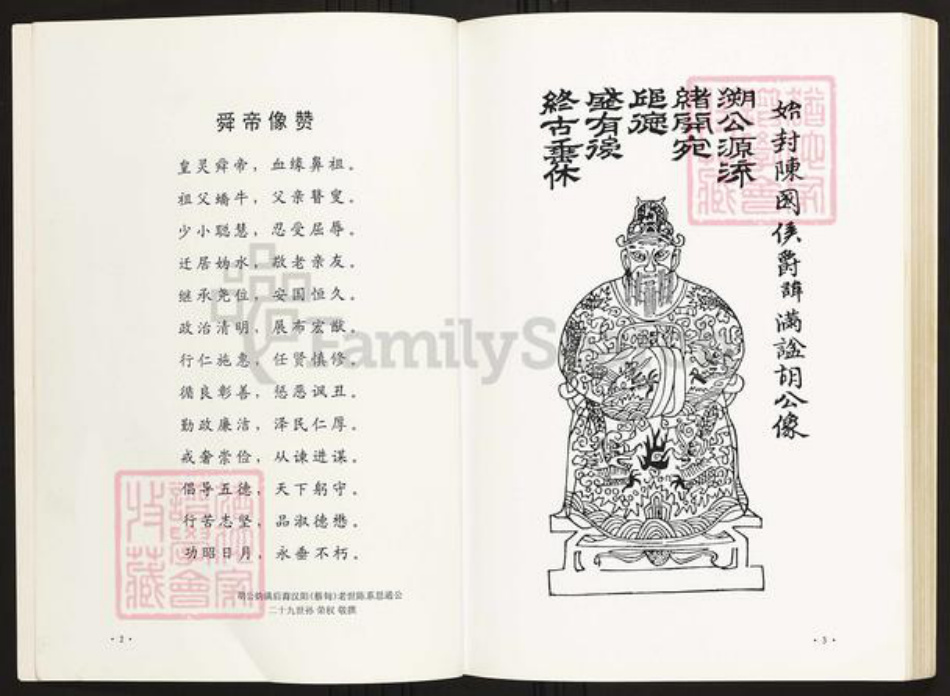 舜帝像赞
皇灵舜帝，血缘鼻祖。
祖父蟜牛，父亲瞽叟。
少小聪慧，忍受屈辱。
迁居妫水，敬老亲友。
继承尧位，安国恒久。
政治清明，展布宏猷。
行仁施惠，任贤慎修。
循良彰善，惩恶讽丑。
勤政廉洁，泽民仁厚。
戒奢崇俭，从谏进谋。
倡导五德，天下躬守。
行苦志坚，品淑德懋。
功昭日月，永垂不朽。
胡公妫满后裔汉阳(蔡甸)老世陈系思通公
二十九世孙 荣权 敬撰
·2·
始封陳國侯爵諱滿謚胡公像
溯公源流
緒開宛
邱德
盛有後
終古垂休
·3·
FamilyS